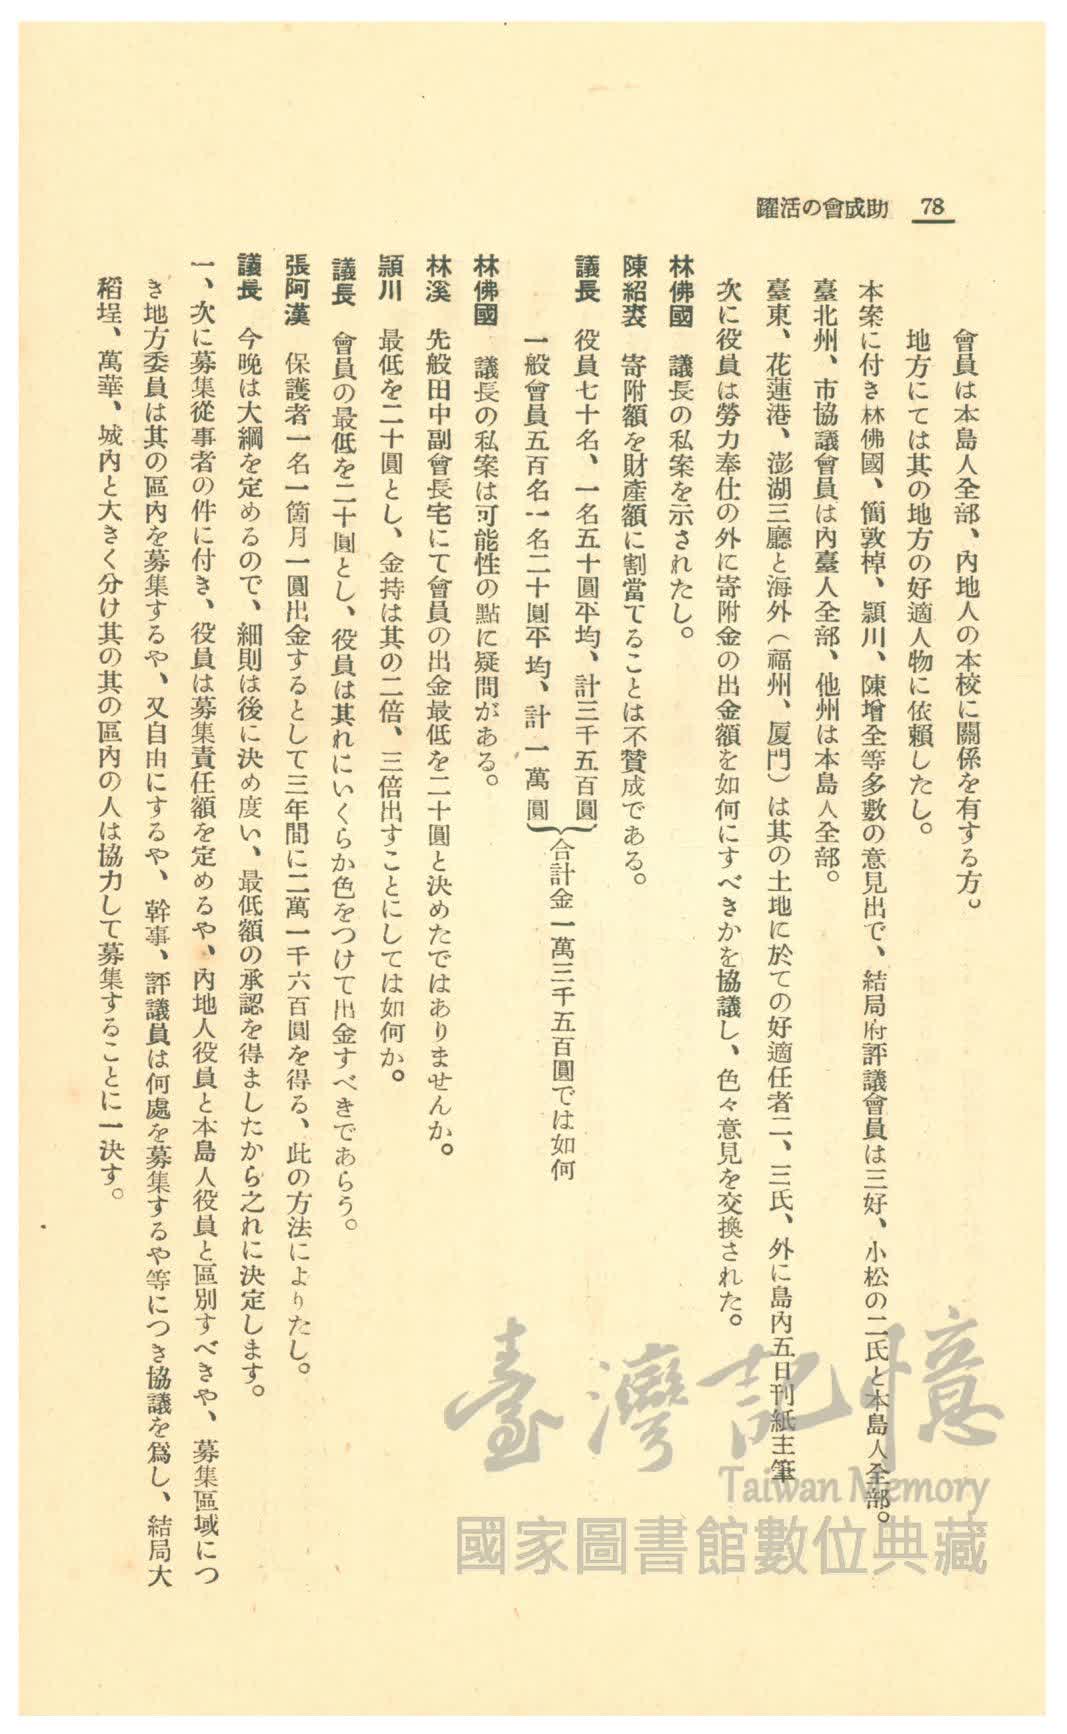 78
助成會の活躍
會員は本島人全部、內地人の本校に關係を有する方。
地方にては其の地方の好適人物に依賴したし。
本案に付き林佛國、簡敦棹、潁川、陳增全等多數の意見出で、結局府評議會員は三好、小松の二氏と本島人全部。
臺北州、市協議會員は內臺人全部、他州は本島人全部。
臺東、花蓮港、澎湖三廳と海外（福州、厦門）は其の土地に於ての好適任者二、三氏、外に島內五日刊紙主筆
次に役員は勞力奉仕の外に寄附金の出金額を如何にすべきかを協議し、色々意見を交換された。
林佛國　議長の私案を示されたし。
陳紹裘　寄附額を財產額に割當てることは不贊成である。
議長　役員七十名、一名五十圓平均、計三千五百圓
一般會員五百名一名二十圓平均、計一萬圓
合計金一萬三千五百圓では如何
林佛國　議長の私案は可能性の點に疑問がある。
林溪　先般田中副會長宅にて會員の出金最低を二十圓と決めたではありませんか。
潁川　最低を二十圓とし、金持は其の二倍、三倍出すことにしては如何か。
議長　會員の最低を二十圓とし、役員は其れにいくらか色をつけて出金すべきであらう。
張阿漢　保護者一名一箇月一圓出金するとして三年間に二萬一千六百圓を得る、此の方法によりたし。
議長　今晚は大綱を定めるので、細則は後に決め度い、最低額の承認を得ましたから之れに決定します。
一、次に募集從事者の件に付き、役員は募集責任額を定めるや、內地人役員と本島人役員と區別すべきや、募集區域につ
き地方委員は其の區內を募集するや、又自由にするや、幹事、評議員は何處を募集するや等につき協議を爲し、結局大
稻埕、萬華、城內と大きく分け其の其の區內の人は協力して募集することに一決す。
臺灣記憶
Taiwan Memory
國家圖書館數位典藏